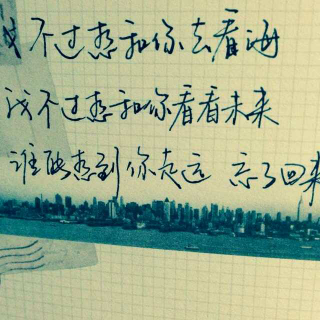 我不过想和你去看海
我不过想和你看看未来
谁能想到你走远 忘了回来